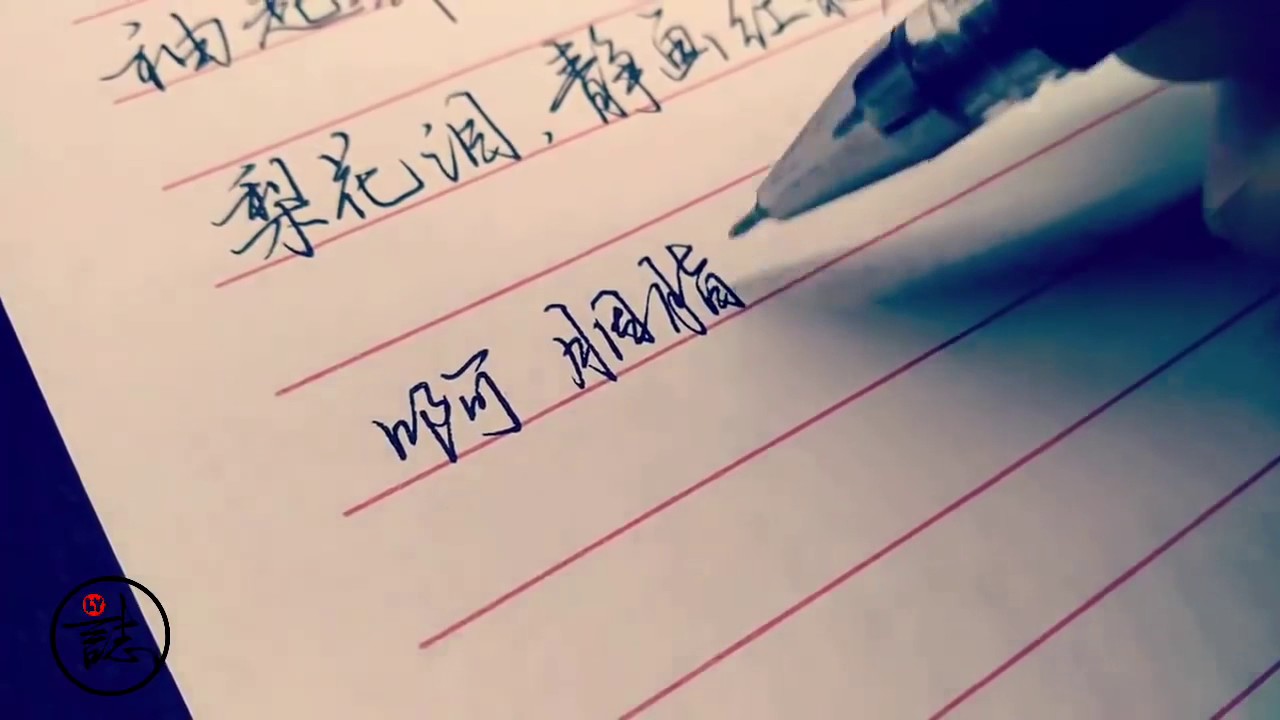 袖起
梨花泪，静画红
啊 胭脂
LY
誌